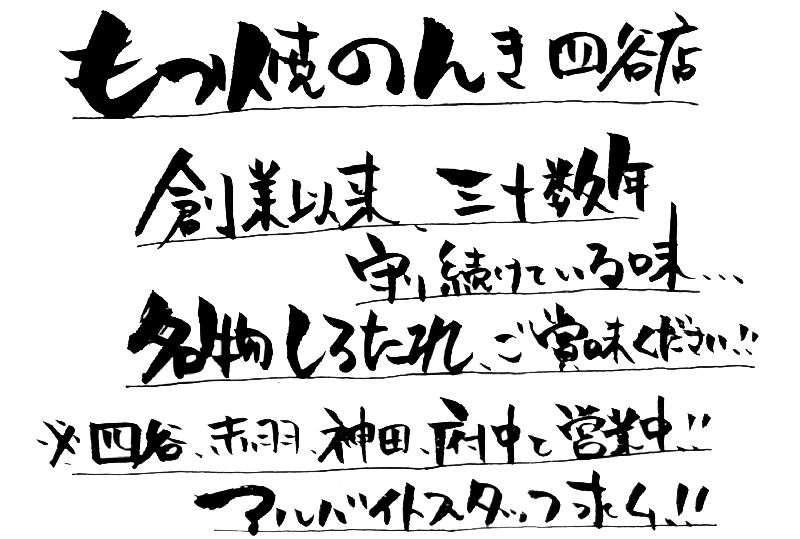 もつ焼のんき 四谷店
創業以来、三十数年
守り続けている味…
名物しろたれ、ご賞味ください!!
※四谷、赤羽、神田、府中と営業中!!
アルバイトスタッフ求ム!!